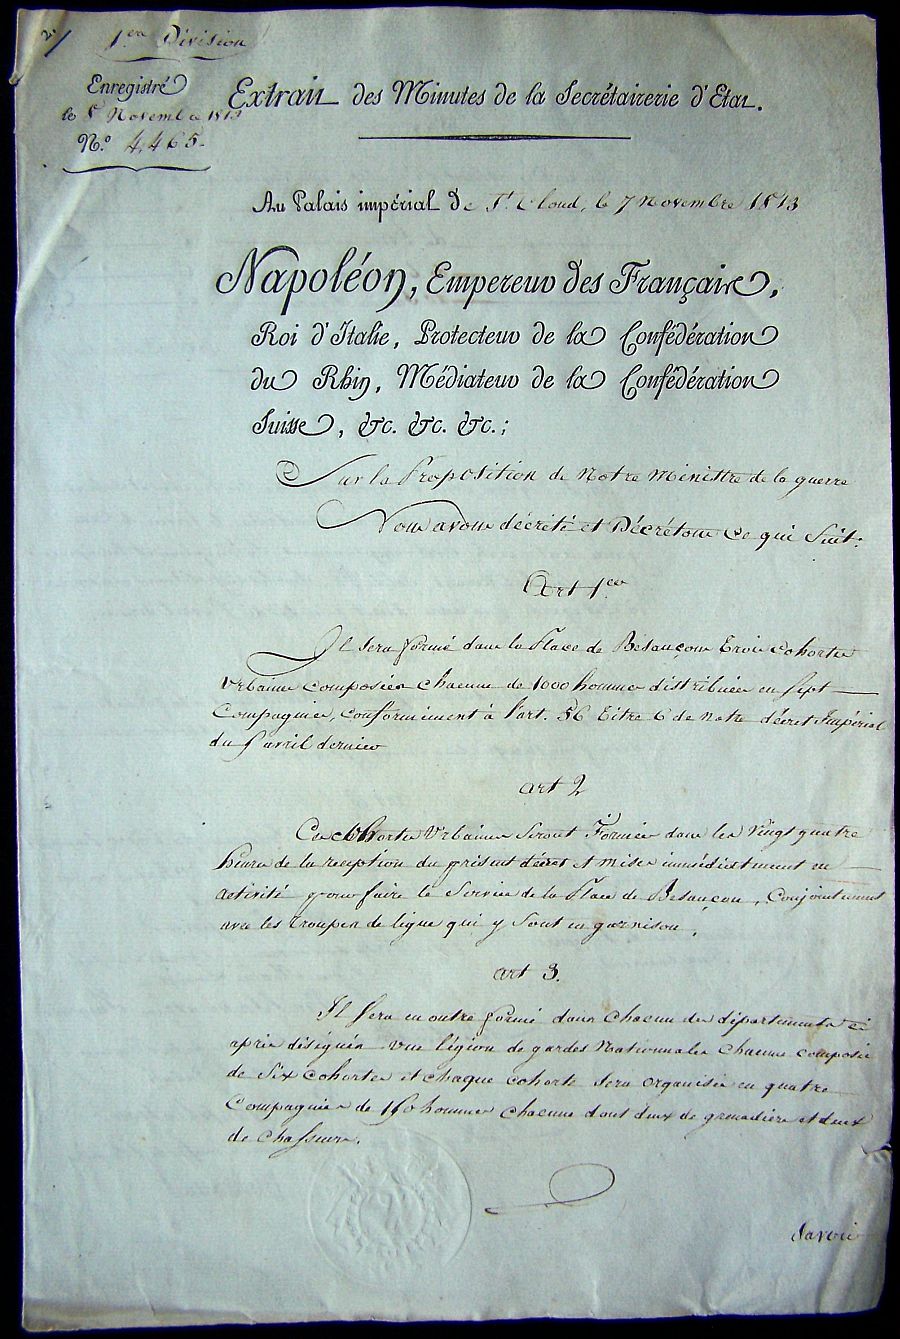 2.
1.ere Division
Enregistré
le 8 Novembre 1813
N.º 4,465.
Extrait des Minutes de la Secrétairerie d'Etat.
Au Palais impérial de St. Cloud, le 7 Novembre 1813
Napoléon, Empereur des Français,
Roi d'Italie, Protecteur de la Confédération
du Rhin, Médiateur de la Confédération
Suisse, &c. &c. &c.;
Sur la Proposition de Notre Ministre de la guerre
Nous avons décrété et Décrétons ce qui Suit:
Art 1.er
Il sera formé dans la Place de Besançon trois cohortes
Urbaines composées chacune de 1000 hommes distribuées en sept
compagnies, conformément à l'art. 56 titre 6 de notre décret Impérial
du 5 avril dernier
art 2
Ces cohortes Urbaines Seront Formées dans les vingt quatre
heures de la reception du présent décret et mises immédiatement en
activité pour faire le Service de la Place de Besançon, Conjointement
avec les troupes de ligne qui y Sont en garnison.
art 3.
Il Sera en outre formé dans chacun des départements ci
après désignés une légion de gardes Nationales chacune composée
de Six cohortes et chaque cohorte sera organisée en quatre
Compagnies de 150 hommes chacune dont deux de grenadiers et deux
de chasseurs.
Savoir